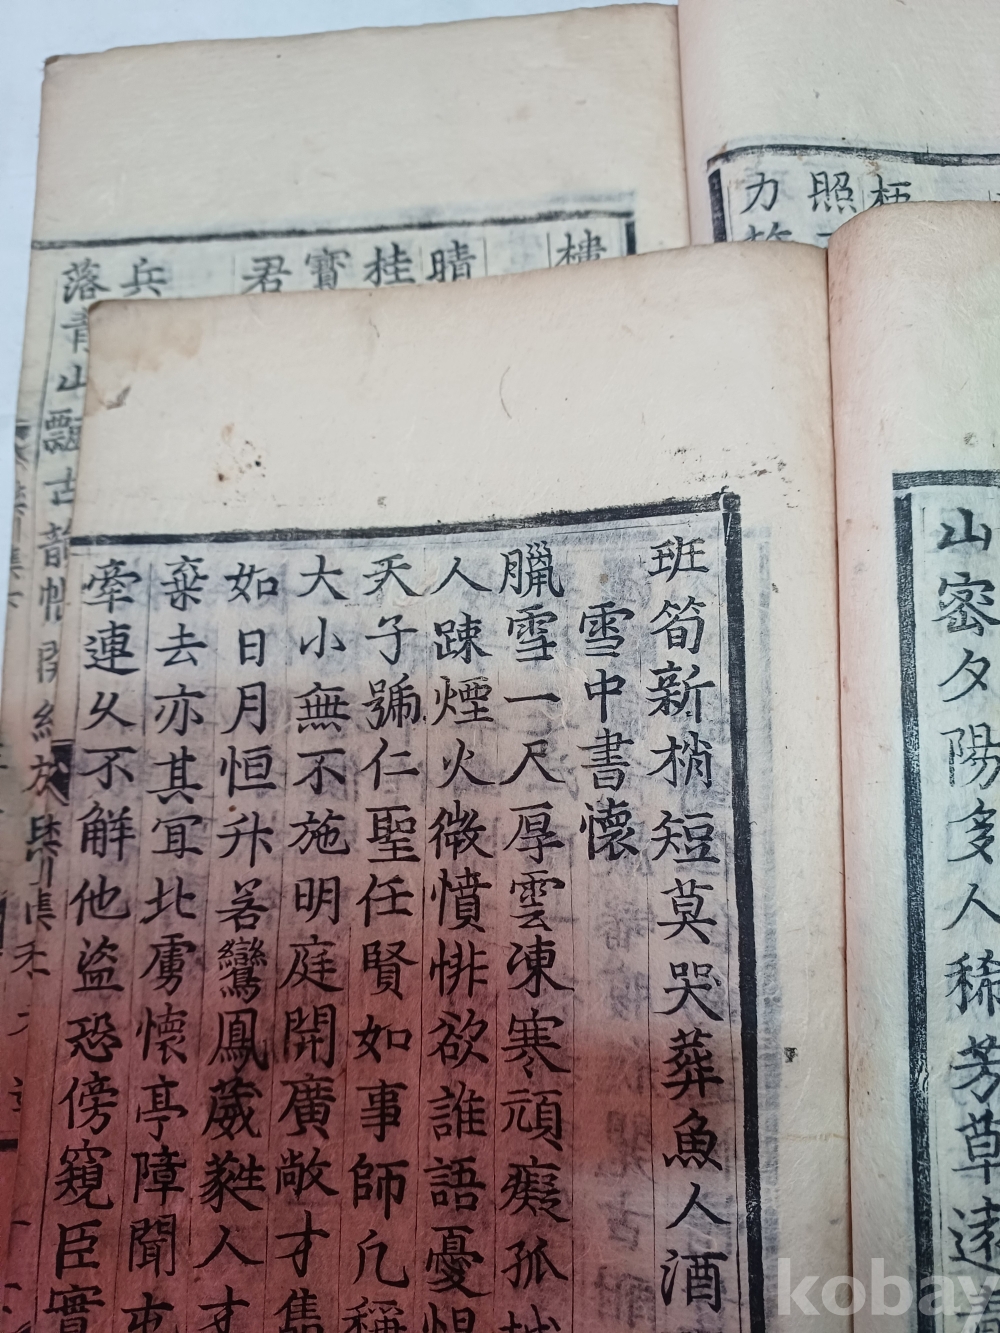 班筍新梢短莫哭葬魚人酒
雪中書懷
臘雪一尺厚雲凍寒頑癡孤城
人踈煙火微憤悱欲誰語憂愠
天子號仁聖任賢如事師凢稱
大小無不施明庭開廣敞才雋
如日月恒升若鸞鳳葳蕤人才
棄去亦其冝北虜懷亭障聞屯
牽連久不解他盜恐傍窺臣實
山密夕陽多人稀芳草遠
力
照
樓
晴
桂
寶
君
兵
落青山飄古韻帖開紅
樊川集
kobay